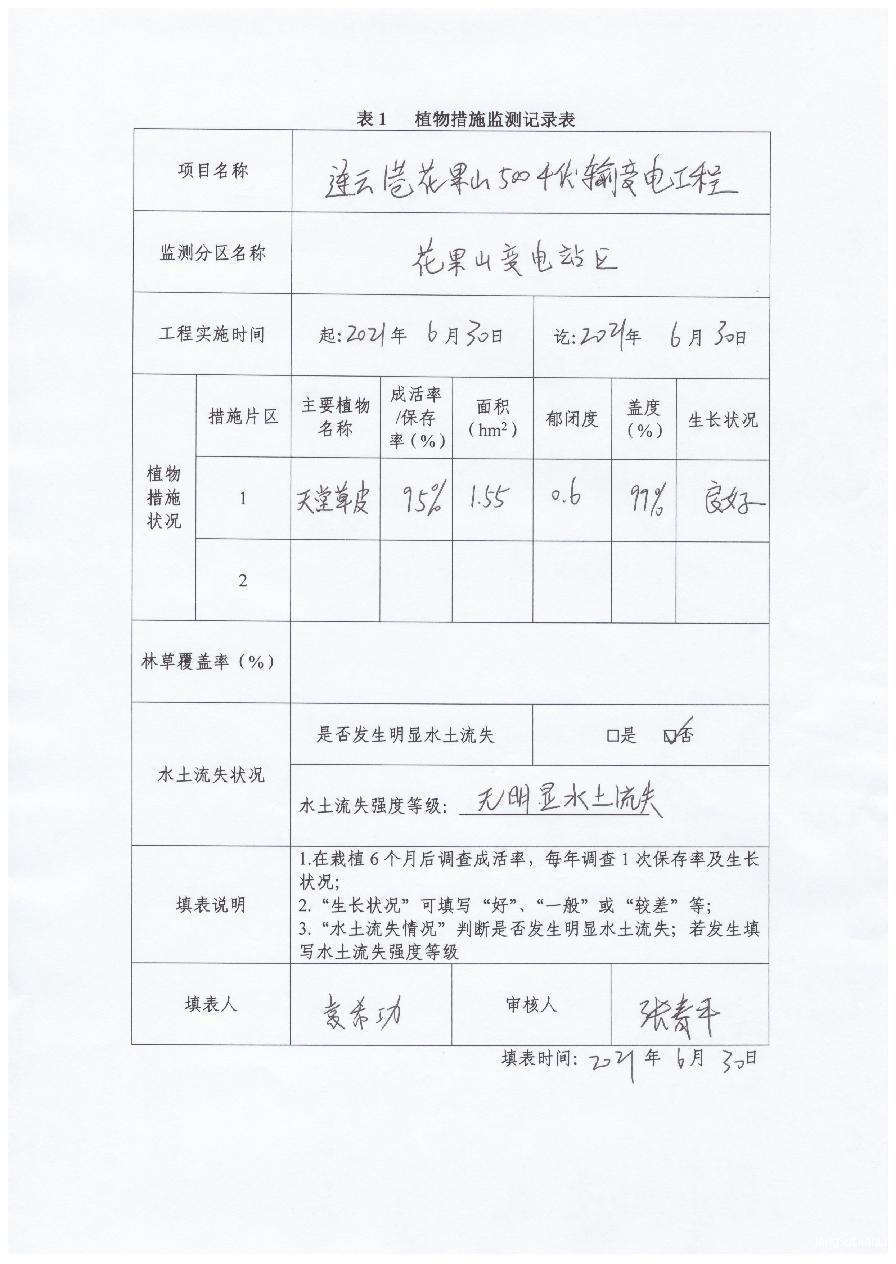 表1 植物措施监测记录表
项目名称 连云港花果山500千伏输变电工程
监测分区名称 花果山变电站区
工程实施时间 起:2021年 6月30日 讫:2021年 6月30日
植物措施状况 措施片区 主要植物名称 成活率/保存率(%) 面积(hm²) 郁闭度 盖度(%) 生长状况
1 天堂草皮 95% 1.55 0.6 99% 良好
2
林草覆盖率(%)
水土流失状况 是否发生明显水土流失 □是 ☑否
水土流失强度等级: 无明显水土流失
填表说明
1.在栽植6个月后调查成活率,每年调查1次保存率及生长
状况;
2.“生长状况”可填写“好”、“一般”或“较差”等;
3.“水土流失情况”判断是否发生明显水土流失;若发生填
写水土流失强度等级
填表人 袁希功 审核人 张春平
填表时间: 2021年 6月 30日